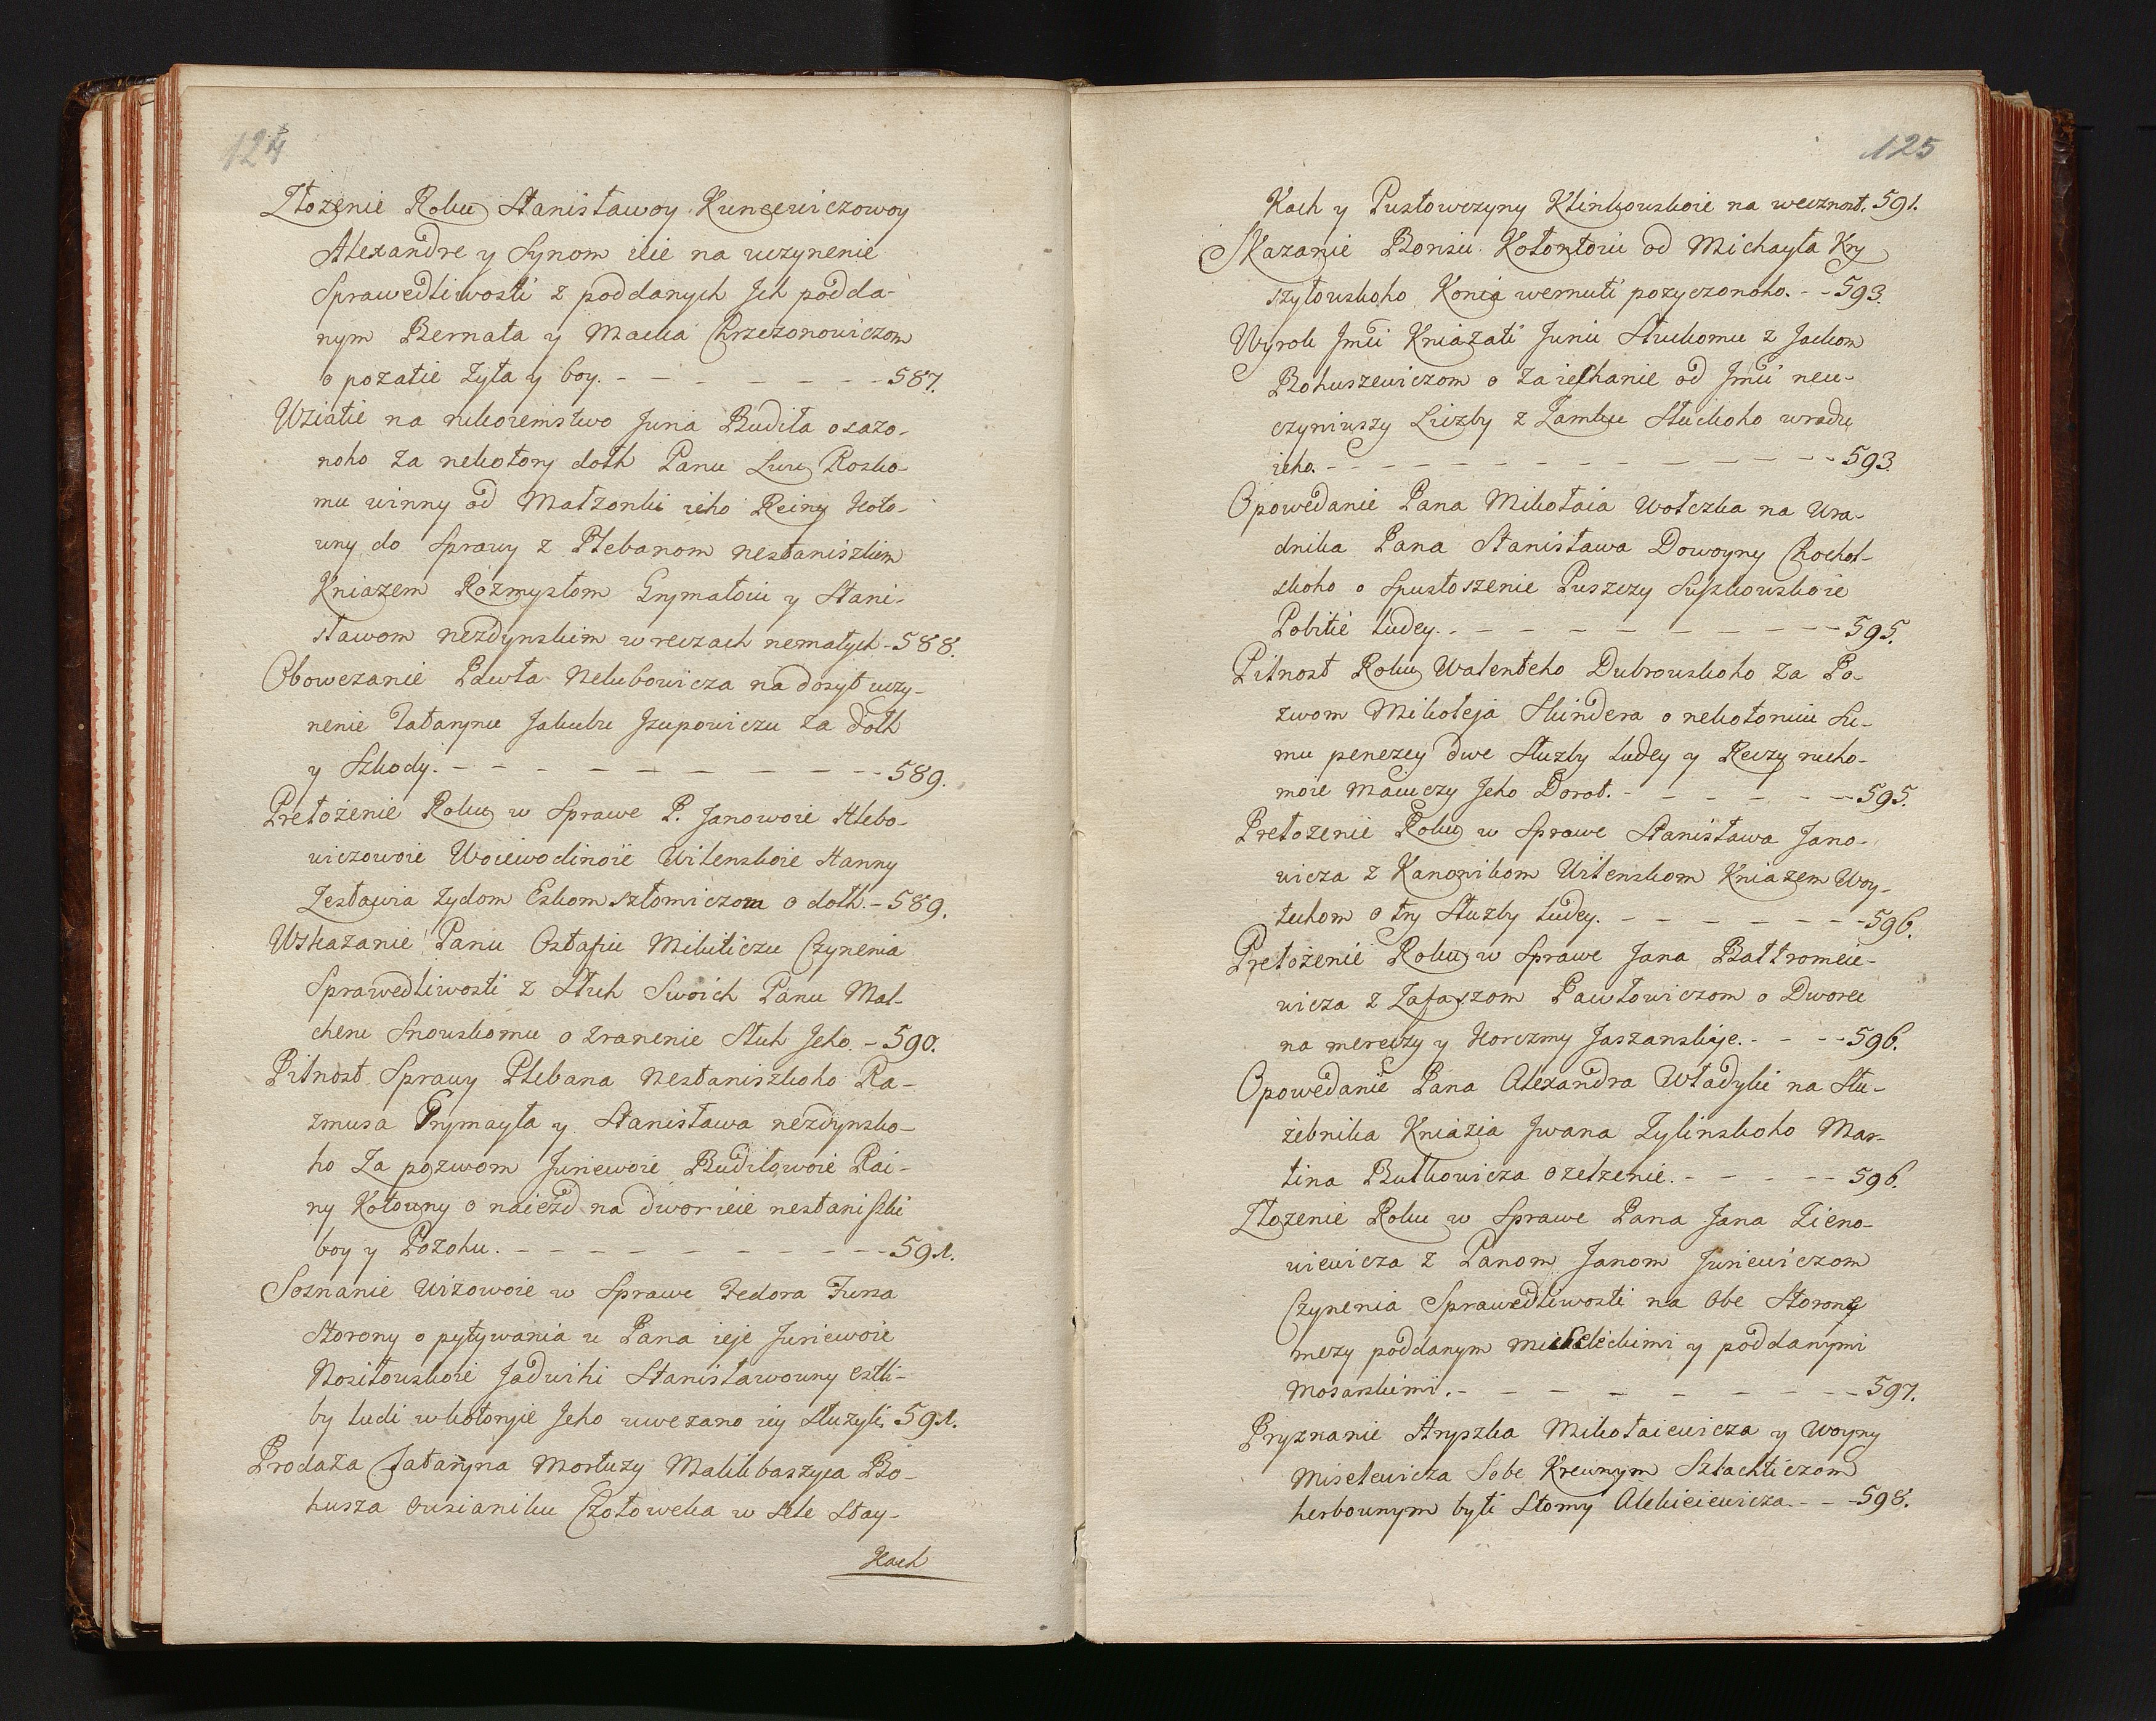 124
Złożenie Roku Stanisławoy Kuncewiczowoy
Alexandre y Synom ieie na uczynenie
Sprawedliwosti z poddanych Jch podda-
nym Bernata y Macka Chrzczonowiczom
o pozatie Zyta y boy. - - - - - - - 587.
Wziatie na rukoiemstwo Juria Budiła osazo-
noho za nekotory dołh Panu Lwu Rosko-
mu winny od Małżonki ieho Reiny Koło-
wny do Sprawy z Plebanom nestaniszkim
Kniazem Rozmysłom Grymałoiu y Stani-
sławom nezdynskim w reczach nemałych - 588.
Obowezanie Pawła Nelubowicza na dosyt uczy-
nenie Tatarynu Jakubu Jzupowiczu za dołh
y Szkody. - - - - - - - - - - 589.
Prełożenie Roku w Sprawe P. Janowoie Hlebo-
wiczowoie Woiewodinoie Wilenskoie Hanny
Zesławia Zydom Eskom szłomiczom o dołh. - 589.
Wskazanie Panu Ostafiu Mikiticzu Czynenia
Sprawedliwosti z Słuh Swoich Panu Mal-
cheru Snowskomu o zranenie Słuh Jeho. - 590.
Pilnost Sprawy Plebana Nestaniszkoho Ra-
zmusa Grymayła y Stanisława nezdynsko-
ho Za pozwom Juriewoie Budiłowoie Rai-
ny Kołowny o naiezd na dwor ieie nestaniszki
boy y Pozohu. - - - - - - - - - 591.
Soznanie Wizowoie w Sprawe Fedora Fursa
Storony opytywania u Pana ieje Juriewoie
Nosiłowskoie Jadwihi Stanisławowny estli-
by ludi w kotoryie Jeho uwezano iey Służyli. 591.
Prodaza Tataryna Mortuzy Malikbaszyca Bo-
husza Owsianiku Czołoweka w Sele Stay-
Kach
125
Kach y Pustowczyny Klinkowskoie na wecznost. 591.
Skazanie Borisu Kołontoiu od Michayła Kry
szyłowskoho Konia wernuti pozyczonoho. - - 593.
Wyrok Jmci Kniazati Juriu Słuckomu z Jackom
Bohuszewiczom o Zaiechanie od Jmci neu-
czyniwszy Liczby z Zamku Słuckoho wradu
ieho. - - - - - - - - - - - - 593
Opowedanie Pana Mikołaia Wołczka na Ura-
dnika Pana Stanisława Dowoyny Chochol-
skoho o Spustoszenie Puszczy Suszkowskoie
Pobitie ludey. - - - - - - - - - 595.
Pilnost Roku Walentcho Dubrowskoho Za Po-
zwom Mikołeja Skindera o nekotoruiu Su-
mu penezey dwe Służby ludey y Reczy rucho-
moie Maiuczy Jeho Dorot. - - - - - 595.
Prełożenie Roku w Sprawe Stanisława Jano-
wicza z Kanonikom Wilenskom Kniazem Woy-
tuhom o try Służby ludey. - - - - - - 596.
Prełożenie Roku w Sprawe Jana Bałtromeie-
wicza z Zafaszom Pawłowiczom o Dworec
na mereczy y Korczmy Jaszanskije. - - - 596.
Opowedanie Pana Alexandra Władyki na Słu-
żebnika Kniazia Jwana Zylinskoho Mar-
tina Butkowicza o zelzenie. - - - - 596.
Złożenie Roku w Sprawe Pana Jana Zieno-
wiewicza z Panom Janom Juriewiczom
Czynenia Sprawedliwosti na Obe Storony
mezy poddanym y poddanymi
Mosarskimi. - - - - - - - - - 597.
Pryznanie Hryszka Mikołaiewicza y Woyny
Misełewicza Sobe Krewnym Szlachticzom
herbownym byti Słomy Alekieiewicza. - - - 598.